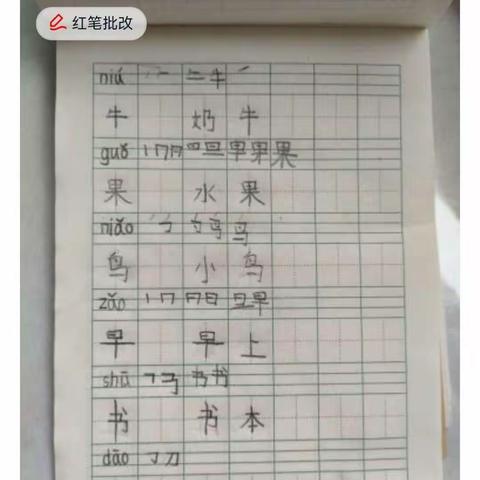 红笔批改
niú 丿 𠂉 二 牛
牛 奶 牛
guǒ 丨 冂 日 旦 早 果 果
果 水 果
niǎo 鸟 鸟
鸟 小 鸟
zǎo 丨 冂 日 日 旦 早
早 早 上
shū 书 书
书 书 本
dāo 刀